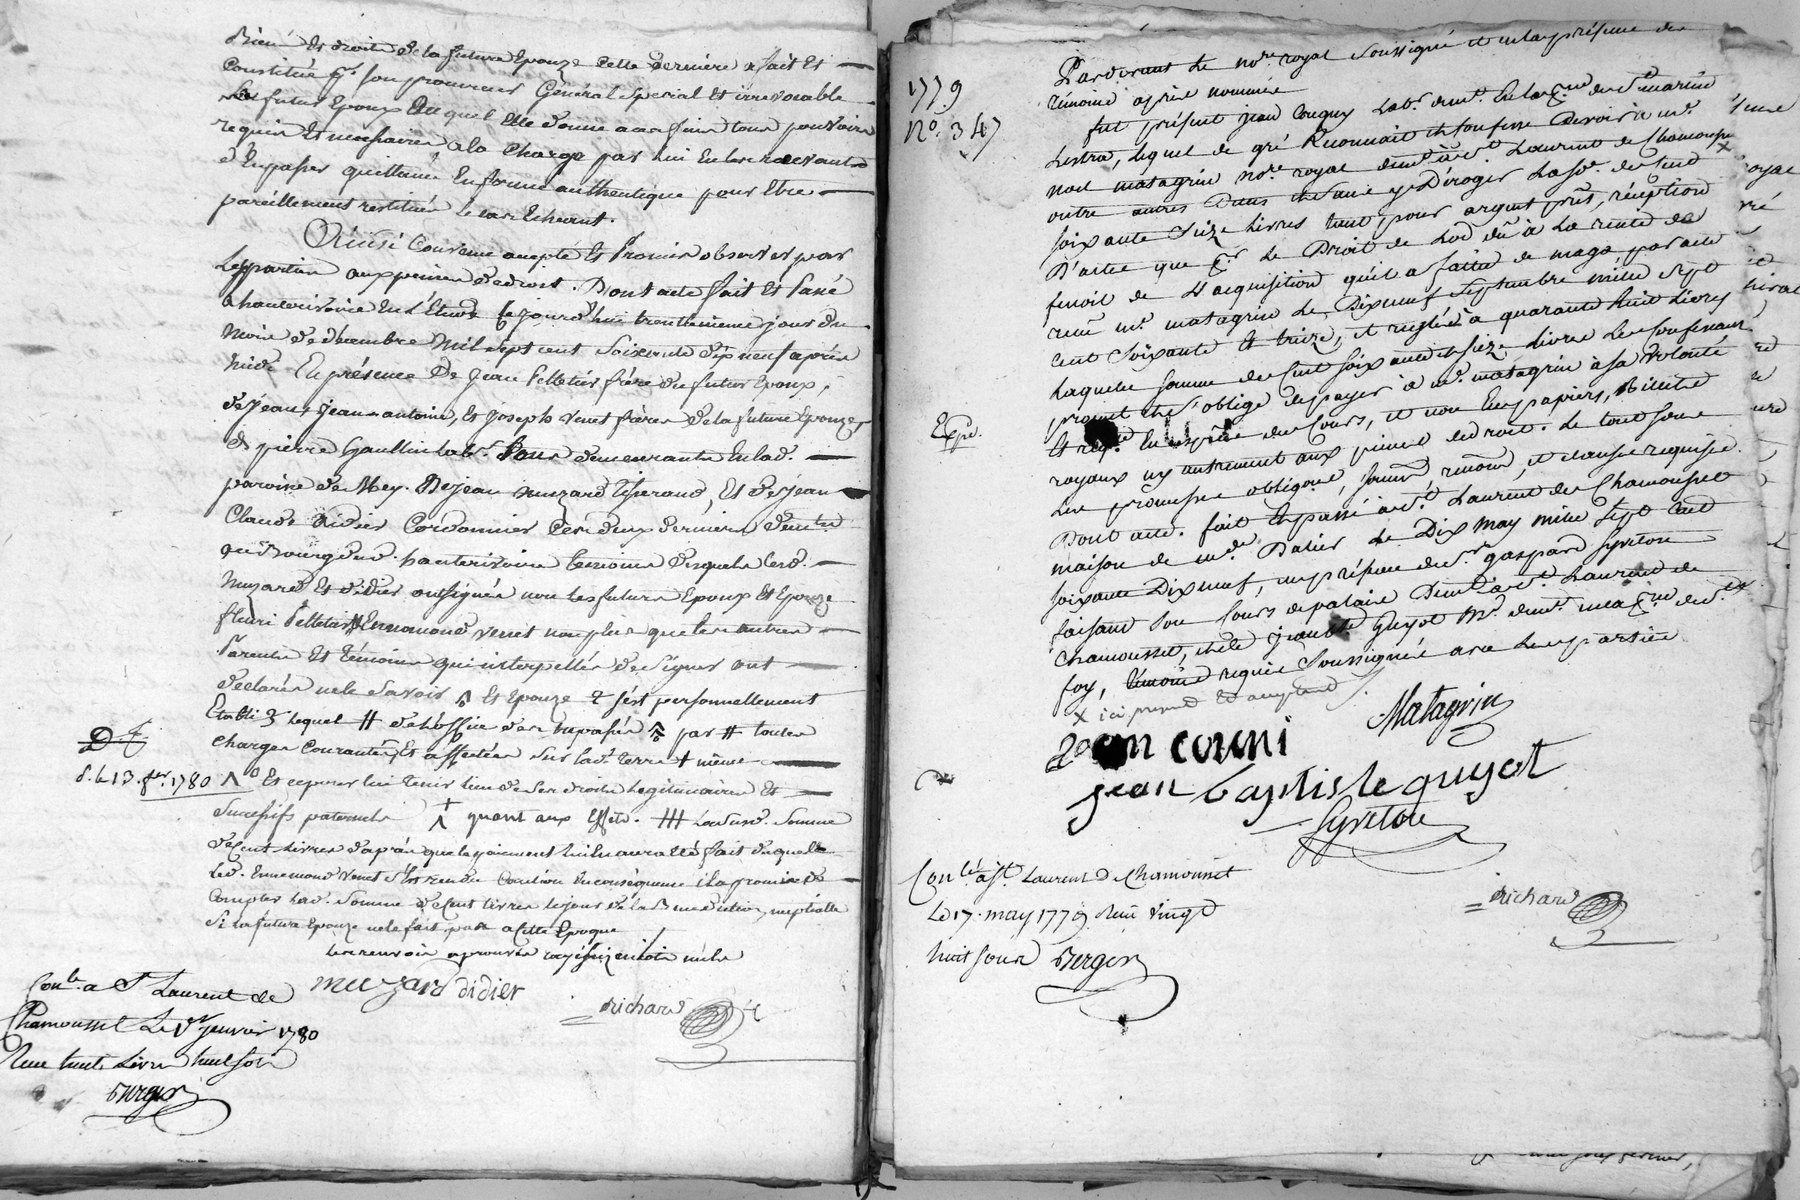 Biens et droits de la future Epouze cette derniere a fait et
Constitué pr. son procureur Général Special et irrevocable
Le futur Epoux Auquel Elle donne a ces fins tous pouvoirs
requis et necessaires a la Charge par lui En les recevant
d'En passer quittance En forme authentique pour Etre
pareillement restitués le cas Echeant.
Ainsi Convenu accepté et Promis observer par
Les parties aux peines de droit. Dont acte fait et Passé
a hauterivoire En l'Etude Ce jourd'hui trentieme jour du
Mois de decembre Mil Sept cent Soixante dix neuf après
Midi En présence De Jean Pelletier frère du futur Epoux,
de Jean, Jean antoine, et Joseph Venet frères de la future Epouze,
de pierre Gaultier labr. Tous demeurants En lad.
paroisse de Mey. De jean muzard Tisserand, Et de Jean
Claude Didier Cordonnier Ces deux derniers demts.
au Bourg dud. hauterivoire temoins desquels lesd.
Muzard et didier ont signés non les futurs Epoux et Epouze
fleuri Pelletier Ennemond Venet non plus que les autres
Parents et temoins qui interpellés de Signer ont
declarés ne le Savoir et Epouze s'est personnellement
Etabli lequel # de l'office des imposés par # toutes
charges Courantes et affectées Sur lad. terre + même
D
d. le 13 fer. 1780
Et ce pour lui tenir lieu de Ses droits Legitimaires Et
Successifs paternels quant aux Effets. Ladusd. Somme
de Cent Livres d'après que le paiement lui En aura eté fait duquel
Led. Ennemond Venet s'Est rendu Caution En conséquence il a promis de
Compter lad. Somme de Cent livres le jour de la Benediction nuptialle
Si la future Epouze ne le fait pas a Cette Epoque
Les renvois approuvés rayé Seize mots nuls
muzard didier
Richard
Conlé a St. Laurent de
Chamousset Le 1er janvier 1780
Reçu huit Livres huit sols
Berger
1779
No. 347
Pardevant Le nore. royal Soussigné et en la présence des
témoins après nommés
fut présent jean Cougny Labr. demt. En la pse. de St. martin
Lestra, Lequel de gré Reconnait et confesse Devoir à me.
noel matagrin nore. royal demt. à St. Laurent de Chamousset x
outre autres Dus et sans y Déroger La Se. de Cent
soixante Seize Livres tant pour argent prêté, réception
D'actes que pr. Le Droit de Lod dû à La rente de
fenoil de L'acquisition qu'il a faite de mage par acte
reçu me. matagrin Le Dixneuf Septembre mille Sept
Cent Soixante et treize, et réglé à quarante huit Livres
Laquelle somme de Cent soixante et seize Livres Le Confessant
promet et s'oblige de payer à me. matagrin à sa volonté
Et reqte. En espèces du Cours, et non En papiers, Billets
royaux ny autrement aux peines de droit. Le tout sous
Les promesses obligons, soumons, renons, et clauses requises.
Expé.
Dont acte. fait et passé à St. Laurent de Chamousset
maison de me. Dalier Le Dix may mille Sept Cent
soixante Dixneuf, en présence de Sr. gaspard Syveton
faisant son Cours de palais Demt. à St. Laurent de
Chamousset, et de jean Bte Guyot Me. demt. en la pse. de Ste
foy, témoins requis Soussignés avec Les parties
x ici présent et acceptant
Matagrin
jean couni
jean baptiste guyot
Syveton
Conlé. a St. Laurent De Chamousset
Le 17. may 1779 Reçu vingt
huit sous Berger
Richard